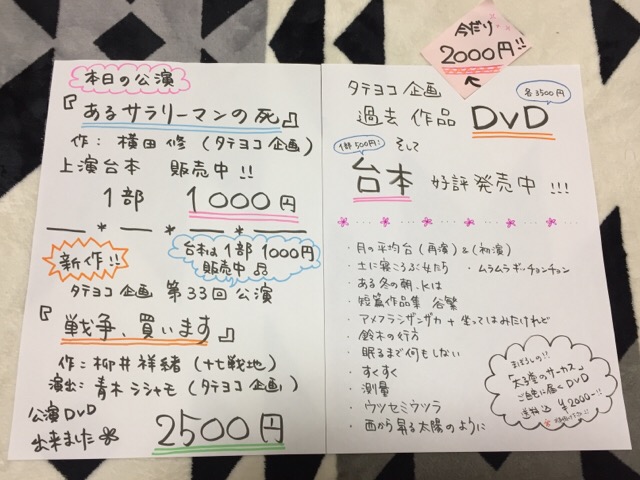 本日の公演
『あるサラリーマンの死』
作：横田 修（タテヨコ企画）
上演台本 販売中!!
1部 1000円
新作!!
台本は1部1000円
販売中♫
タテヨコ企画 第33回公演
『戦争、買います』
作：柳井祥緒（十七戦地）
演出：青木シシャモ（タテヨコ企画）
公演DVD
出来ました
2500円
今だけ
2000円!!
タテヨコ企画
各3500円
過去作品 DVD
1部500円!
そして
台本 好評発売中!!!
・月の平均台（再演）&（初演）
・土に寝ころぶ女たち ・ムラムラギッチョンチョン
・ある冬の朝、Kは
・短篇作品集 谷繁
・アメフラシザンザカ＋坐ってはみたけれど
・鈴木の行方
・眠るまで何もしない
・すくすく
・測量
・ウツセミウツラ
・西から昇る太陽のように
まぼろしの!!
「太子堂のサーカス」
ご自宅に届くDVD
送料込 ¥2000-!!